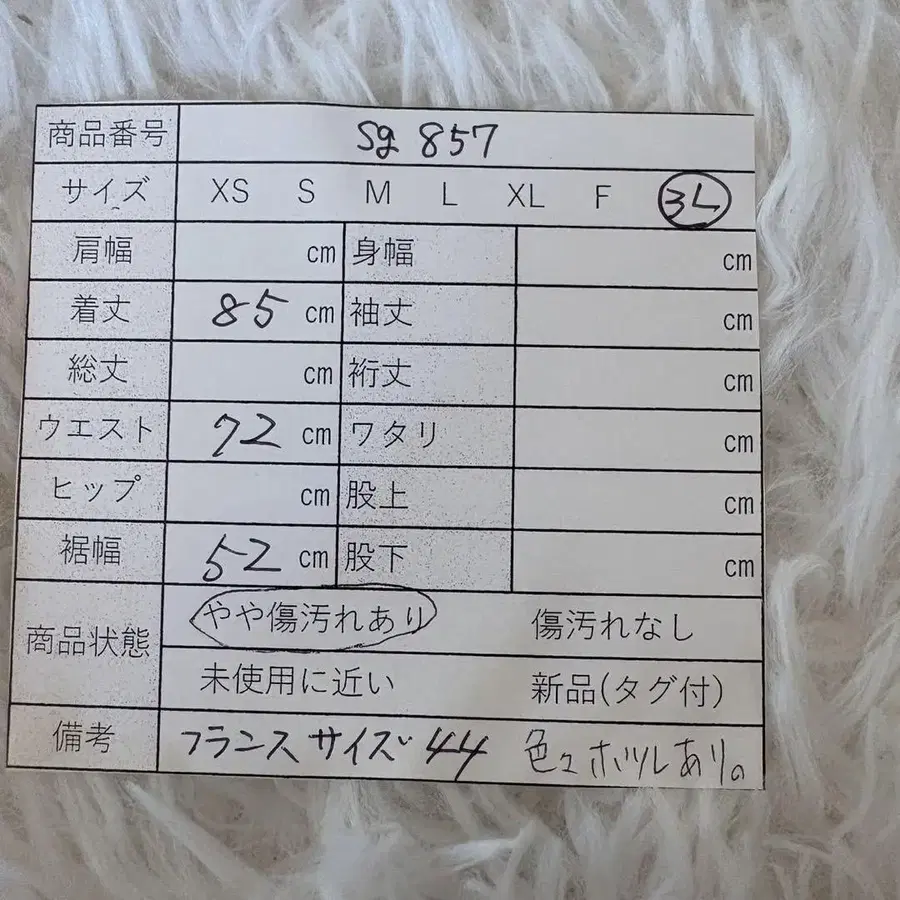 商品番号 Sg 857
サイズ XS S M L XL F 3L
肩幅 cm 身幅 cm
着丈 85 cm 袖丈 cm
総丈 cm 裄丈 cm
ウエスト 72 cm ワタリ cm
ヒップ cm 股上 cm
裾幅 52 cm 股下 cm
商品状態 やや傷汚れあり 傷汚れなし
未使用に近い 新品(タグ付)
備考 フランスサイズ 44 色々ホツレあり。